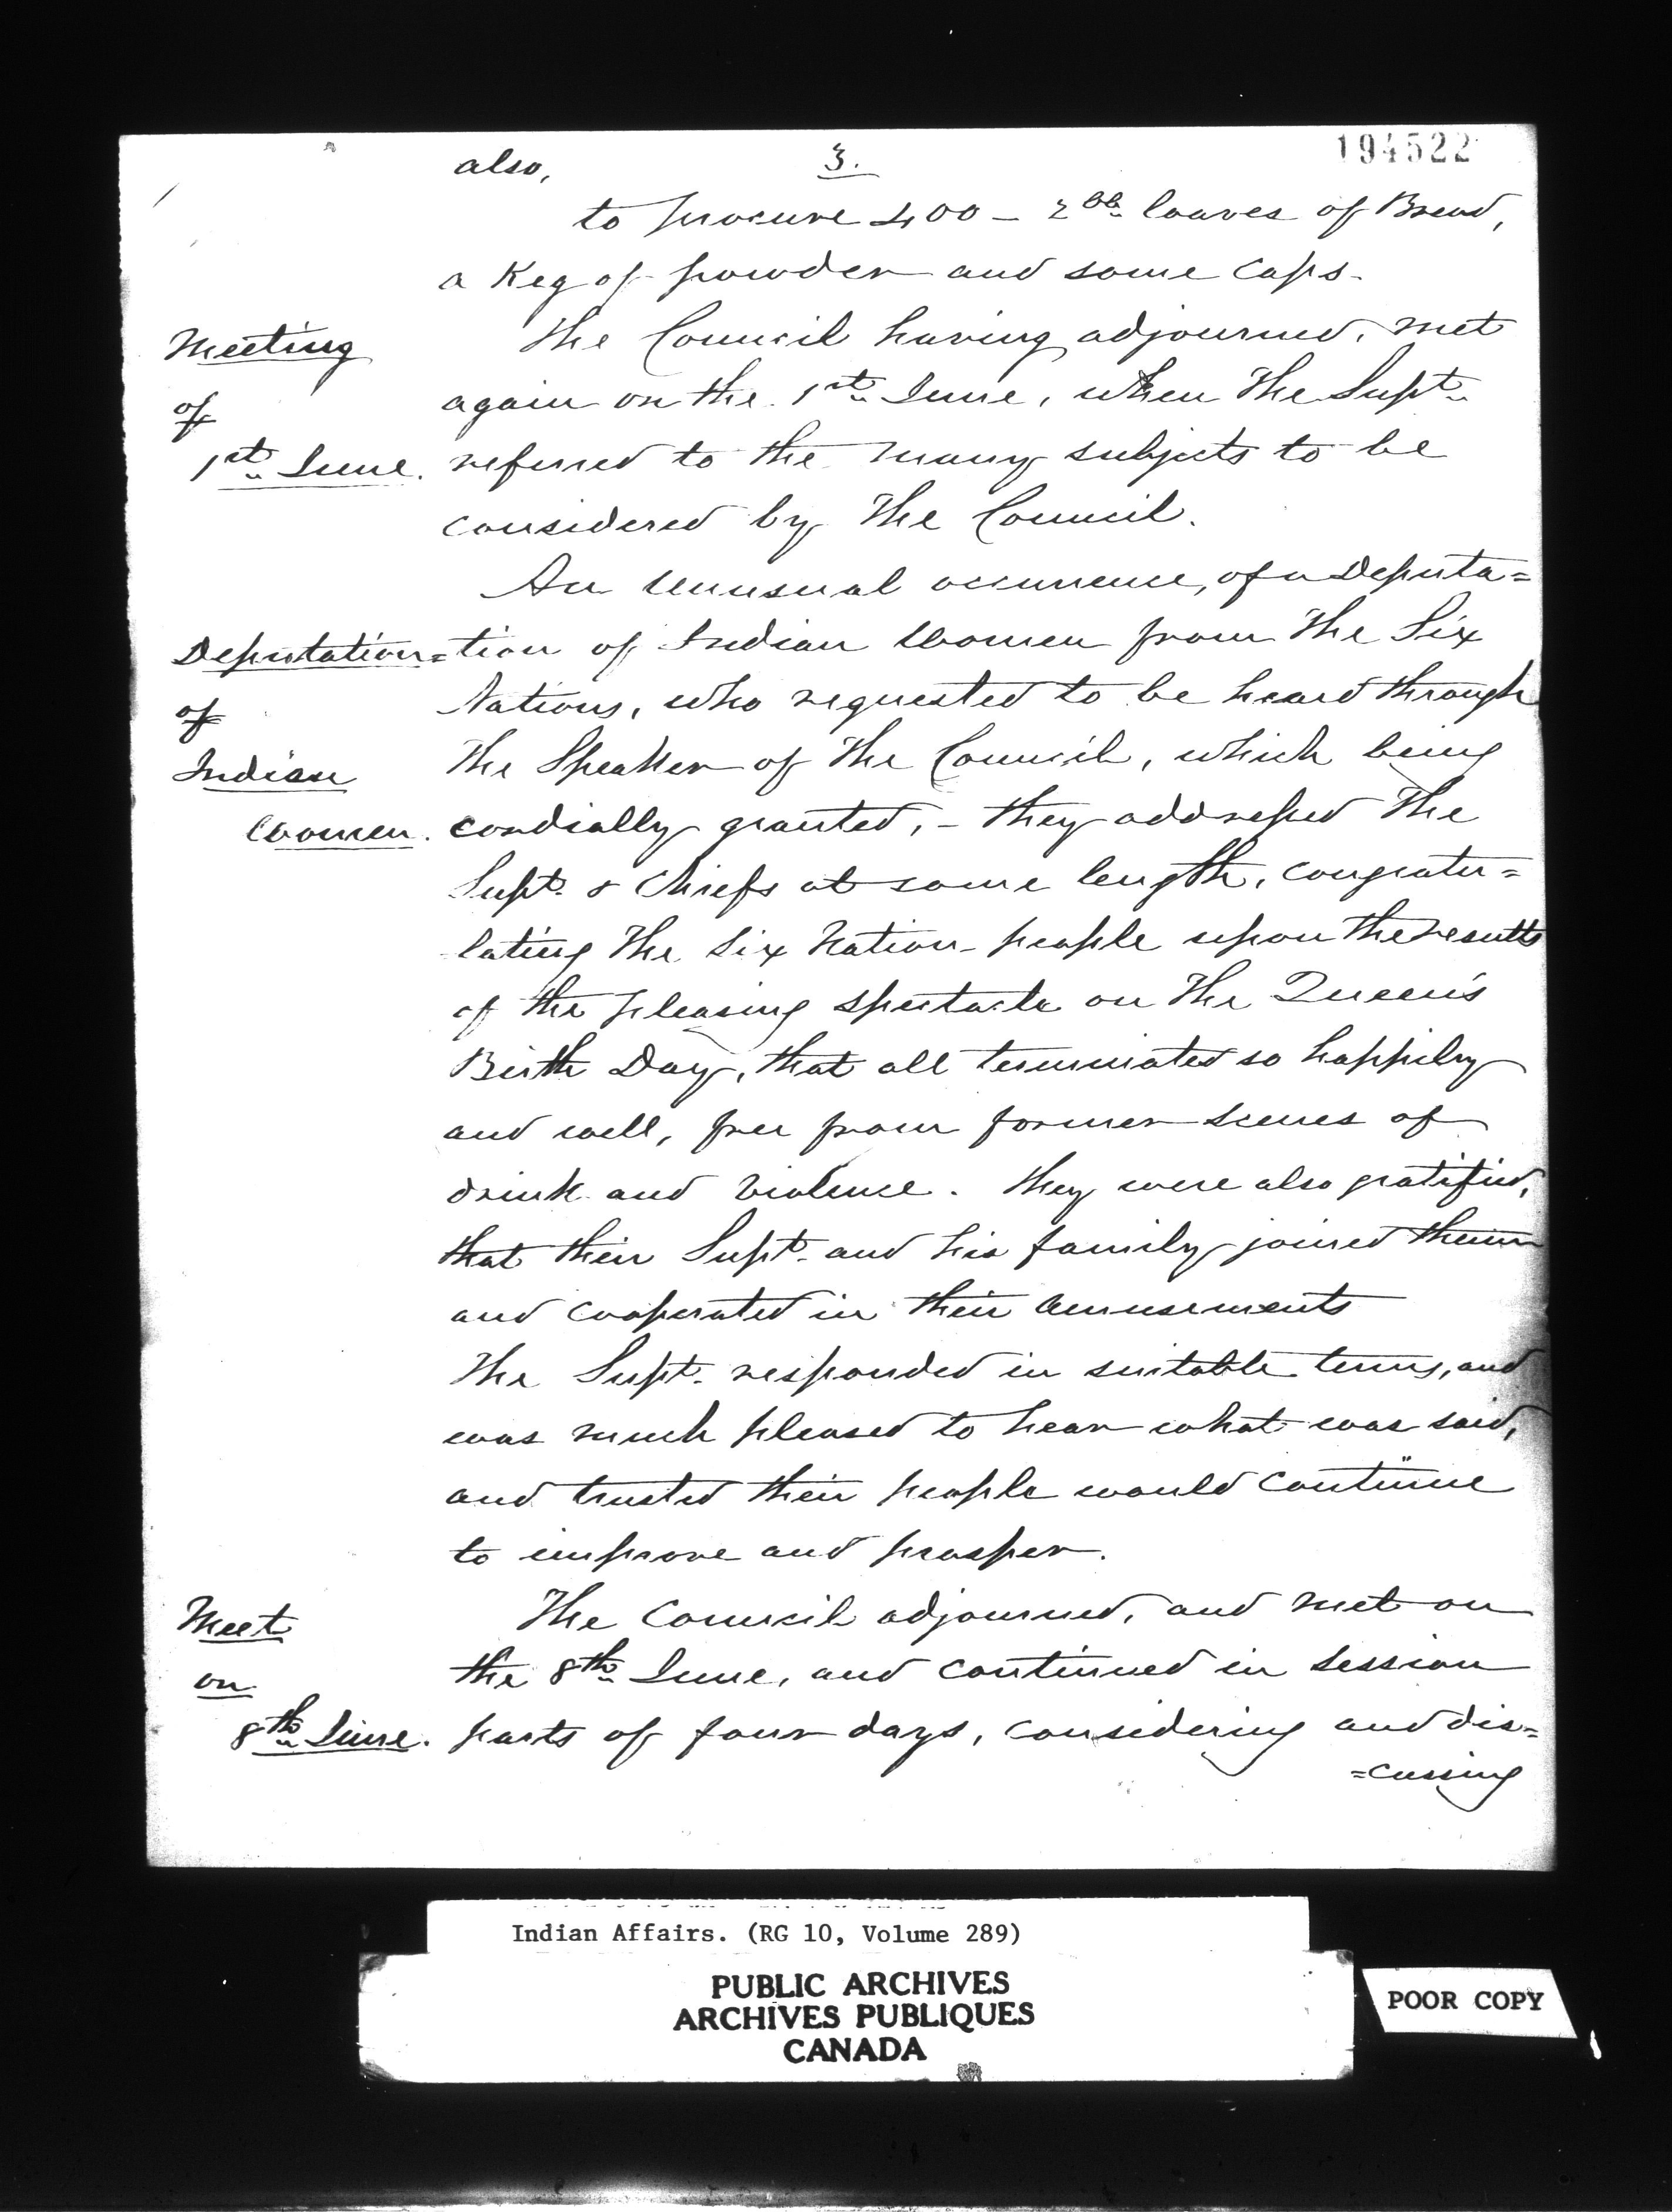 194522
also, 3.
to procure 400 - 2 lb loaves of Bread,
a Keg of powder and some Caps.
Meeting
of
1st June.
The Council having adjourned, met
again on the 1st June, when The Supt.
referred to the many subjects to be
considered by The Council.
An unusual occurrence, of a Deputa=
Deputation
of
Indian
Women.
=tion of Indian Women from The Six
Nations, who requested to be heard through
The Speaker of The Council, which being
cordially granted, - they addressed The
Supt. & Chiefs at some length, congratu=
lating The Six Nation people upon the results
of the pleasing spectacle on The Queen's
Birth Day, that all terminated so happily
and well, free from former scenes of
drink and violence. They were also gratified,
that their Supt. and his family joined therein
and cooperated in their amusements
The Supt. responded in suitable terms, and
was much pleased to hear what was said,
and trusted their people would continue
to improve and prosper.
Meet
on
8th June.
The Council adjourned, and met on
the 8th June, and continued in session
parts of four days, considering and dis=
=cussing
Indian Affairs. (RG 10, Volume 289)
PUBLIC ARCHIVES
ARCHIVES PUBLIQUES
CANADA
POOR COPY